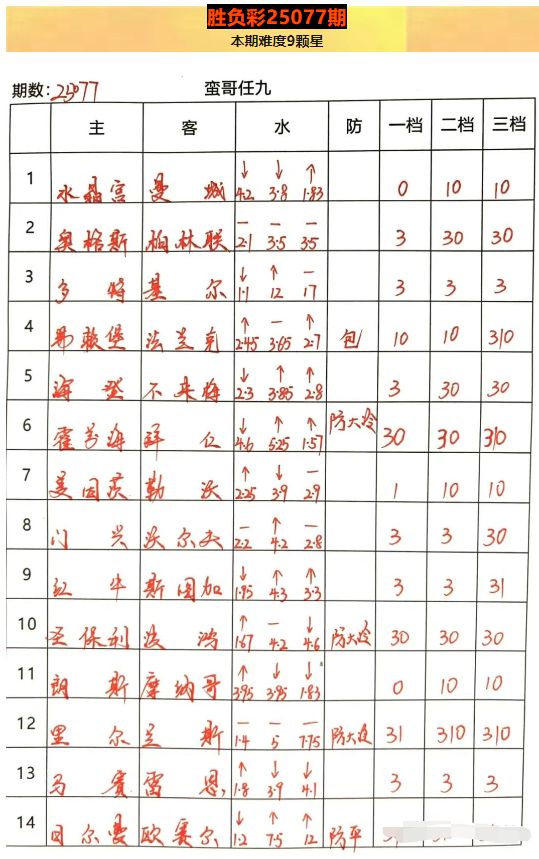 胜负彩25077期
本期难度9颗星
期数: 25077 蛮哥任九
主 客 水 防 一档 二档 三档
1 水晶宫 曼城 ↓4.2 ↓3.8 ↑1.83 0 10 10
2 奥格斯 柏林联 —2.1 —3.5 —3.5 3 30 30
3 多特 基尔 ↓1.1 ↑12 —17 3 3 3
4 弗赖堡 法兰克 ↑2.45 —3.65 ↑2.7 包 10 10 310
5 海登 不来梅 ↓2.3 ↑3.85 ↑2.8 3 30 30
6 霍芬海 拜仁 ↓4.6 ↑5.25 ↑1.57 防大冷 30 30 310
7 美因茨 勒沃 ↑2.25 ↓3.9 —2.9 1 10 10
8 门兴 沃尔夫 —2.2 ↑4.2 —2.8 3 3 30
9 红牛 斯图加 ↓1.95 ↑4.3 ↑3.3 3 3 31
10 圣保利 波鸿 ↑1.67 —4.2 ↓4.6 防大冷 30 30 30
11 朗斯 摩纳哥 ↑3.95 ↓3.95 ↓1.83 0 10 10
12 里尔 兰斯 —1.4 —5 —7.75 防大冷 31 310 310
13 马赛 雷恩 ↑1.8 ↓3.9 ↓4.1 3 3 3
14 日尔曼 欧赛尔 ↓1.2 ↑7.5 ↑12 防平